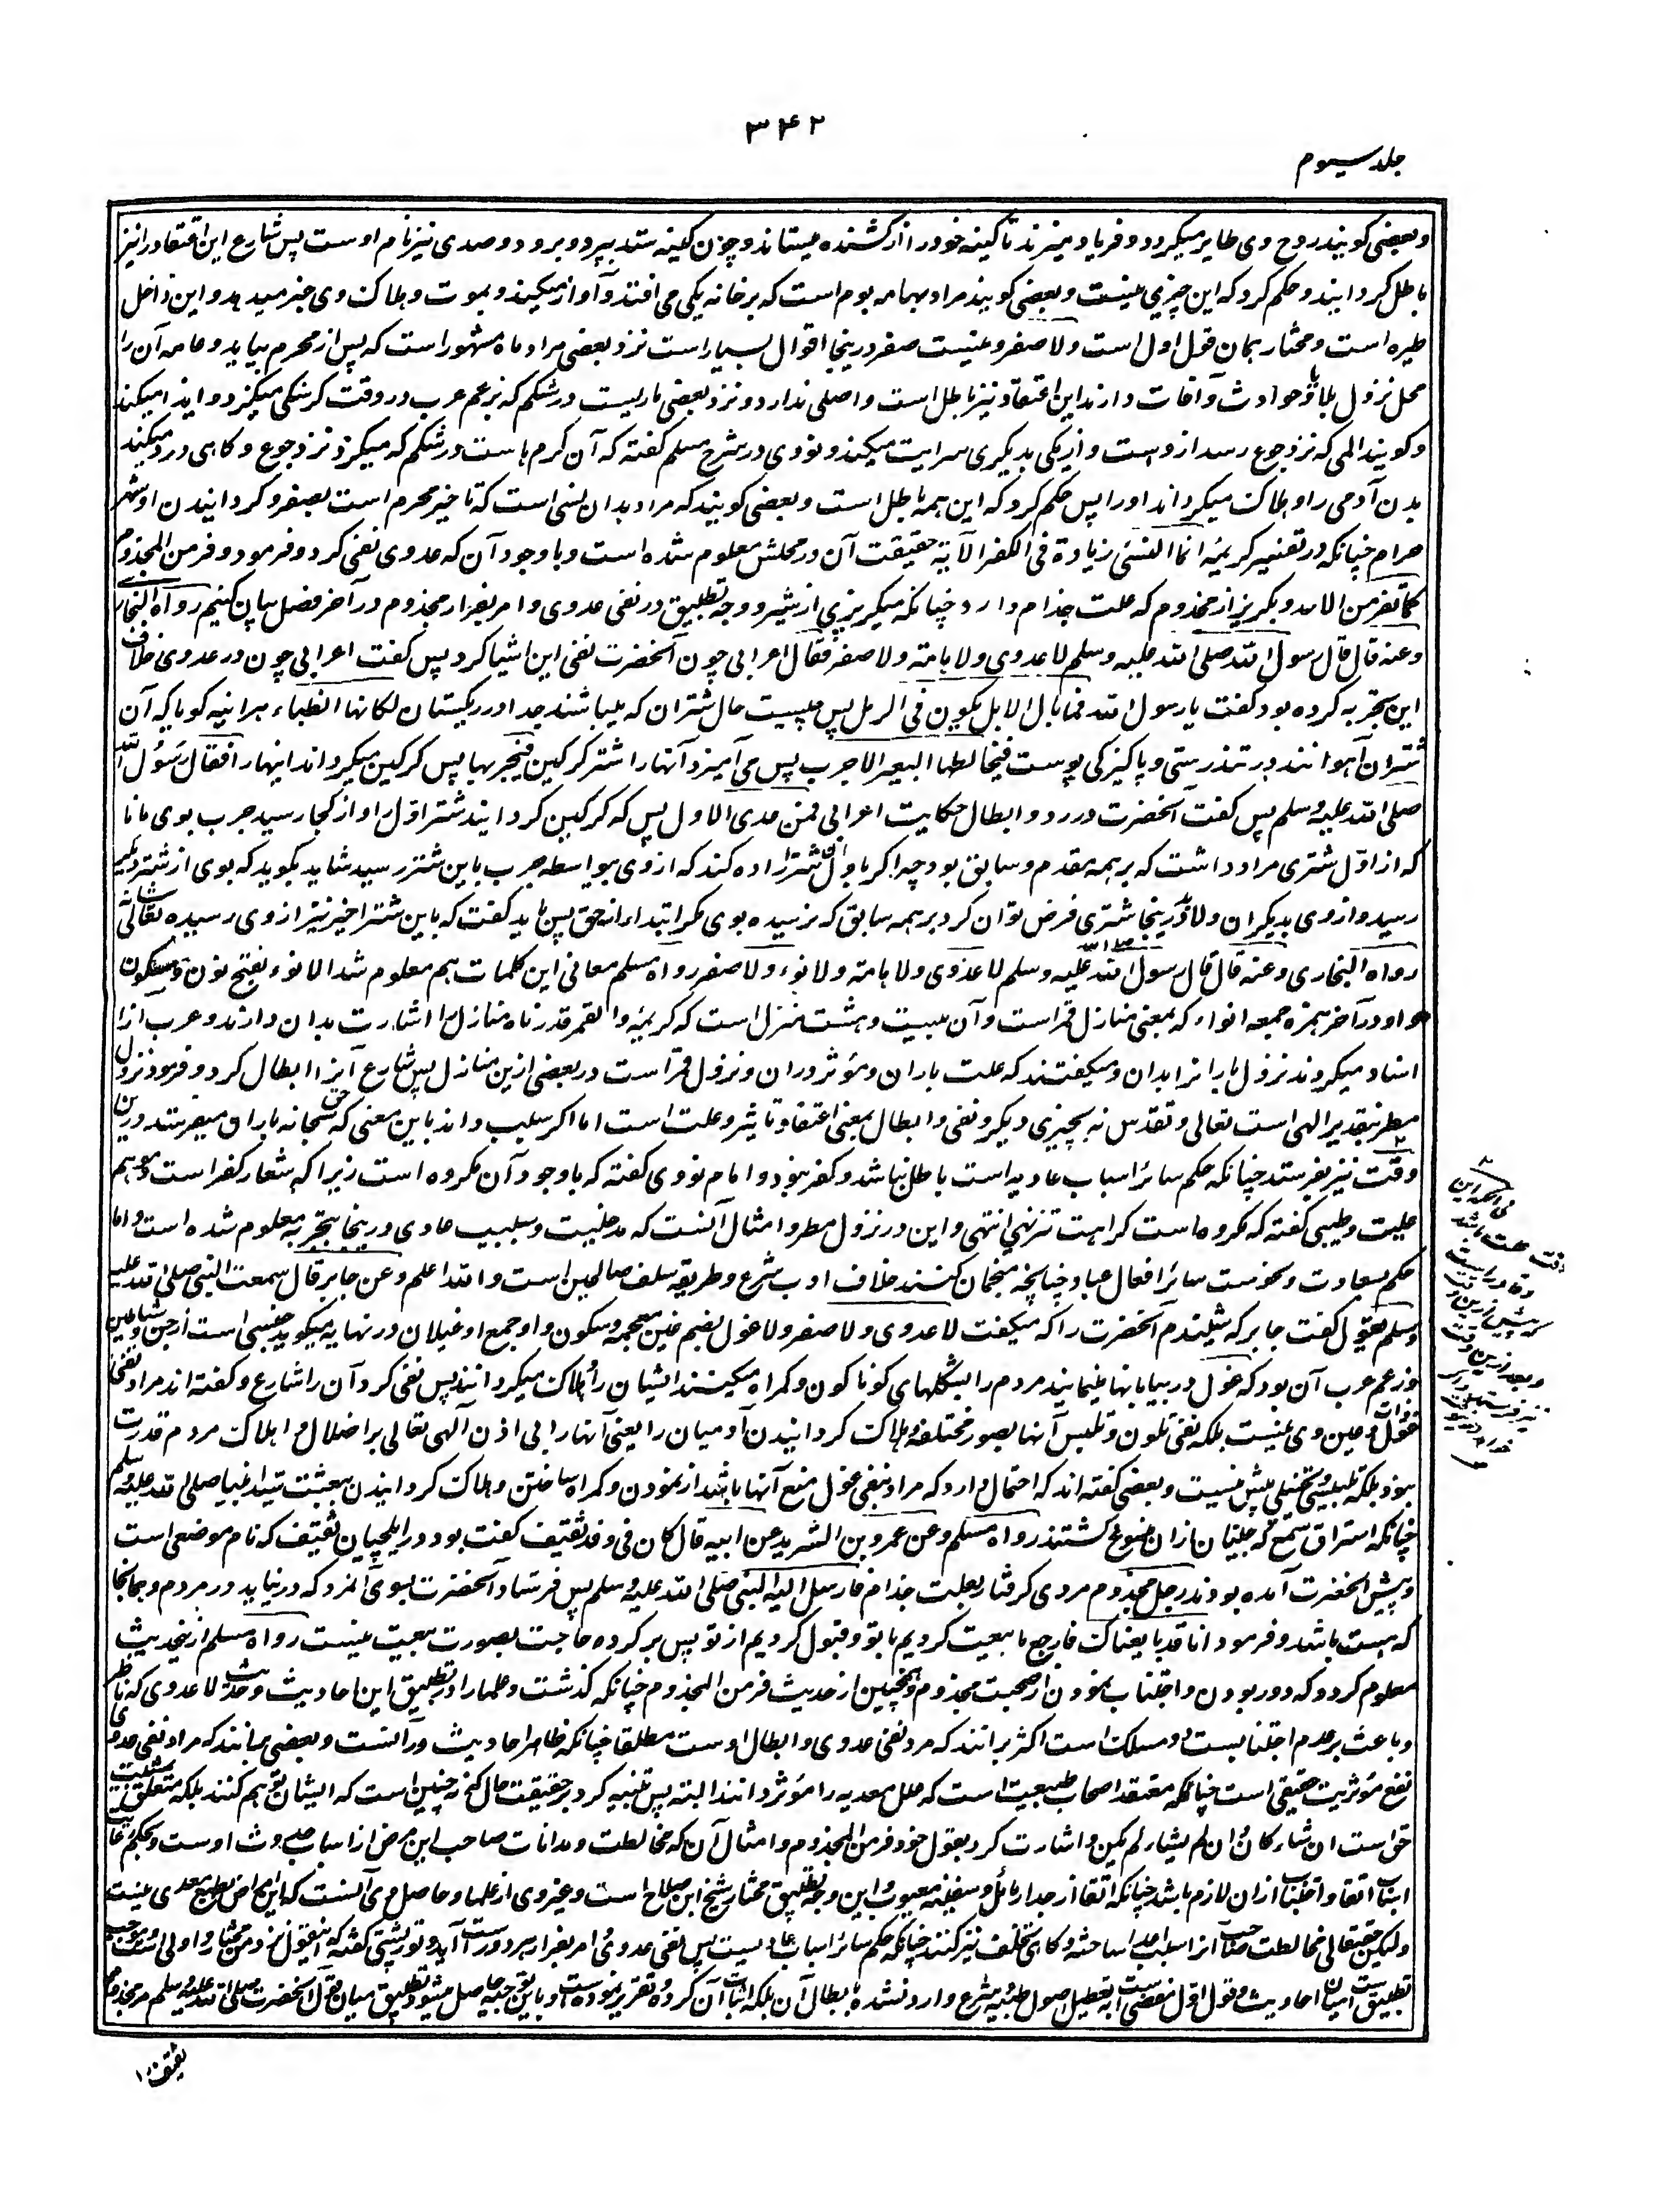 ۳۴۲
جلد سیوم
و بعضی کویند روح وی طایر میکردد و فریاد میزند تا کینه خود را از کشنده میستاند و چون کینه ستد بپرد و برود و صدی نیز نام اوست پس شارع این اعتقاد را نیز
باطل کردانید و حکم کرد که این چیزی نیست و بعضی کویند مراد بهامه بوم است که بر خانه یکی می افتد و آواز میکند و بموت و هلاکت وی خبر میدهد و این داخل
طیره است و مختار همان قول اول است ولا صفر و نیست صفر درینجا اقوال بسیار است نزد بعضی مراد ماه مشهور است که پس از محرم بیاید و عامه آن را
محل نزول بلاها و حوادث و آفات دارند این اعتقاد نیز باطل است و اصلی ندارد و نزد بعضی ماریست در شکم که بزعم عرب در وقت کرسنکی میکزد و ایذا میکند
و کویند المی که نزد جوع رسد ازوست و از یکی بدیکری سرایت میکند و نووی در شرح مسلم کفته که آن کرم هاست در شکم که میکزد نزد جوع و کاهی درد میکند
بدن آدمی را و هلاک میکرداند او را پس حکم کرد که این همه باطل است و بعضی کویند که مراد بدان نسی است که تاخیر محرم است بصفر و کردانیدن او شهر
حرام چنانکه در تفسیر کریمه انما النسئ زیادة فی الکفر الآیة حقیقت آن در محلش معلوم شده است و با وجود آن که عدوی نفی کرد و فرمود و فر من المجذوم
کما تفر من الاسد و بکریز از مجذوم که علت جذام دارد چنانکه میکریزی از شیر و وجه تطبیق در نفی عدوی و امر بفرار مجذوم در آخر فصل بیان کنیم رواه البخاری
وعنه قال قال رسول الله صلی الله علیه وسلم لا عدوی ولا هامة ولا صفر فقال اعرابی چون آنحضرت نفی این اشیا کرد پس کفت اعرابی چون در عدوی خلاف
این تجربه کرده بود کفت یا رسول الله فما بال الابل یکون فی الرمل پس چیست حال شتران که میباشند جدا در ریکستان لکانها الظباء هر اینه کویا که آن
شتران آهوانند در تندرستی و پاکیزکی پوست فیخالطها البعیر الاجرب پس می آمیزد آنها را شتر کرکین فیجربها پس کرکین میکرداند اینها را فقال رسول الله
صلی الله علیه وسلم پس کفت آنحضرت در رد و ابطال حکایت اعرابی فمن عدی الاول پس که کرکین کردانید شتر اول را و از کجا رسید جرب بوی مانا
که از اول شتری مراد داشت که بر همه مقدم و سابق بود چه اکر باول آن شتر اراده کند که از وی بواسطه جرب باین شتر رسید شاید بکوید که بوی از شتر دیکر
رسید و از وی بدیکران ولا درینجا شتری فرض توان کرد بر همه سابق که نرسیده بوی مکر ابتداء از حق پس باید کفت که باین شتر اخیر نیز از وی رسیده تعالی شانه
رواه البخاری وعنه قال قال رسول الله صلی الله علیه وسلم لا عدوی ولا هامة ولا نوء ولا صفر رواه مسلم معانی این کلمات هم معلوم شد الا نوء بفتح نون و سکون
واو در آخر همزه جمعه انواء که بمعنی منازل قمر است و آن بیست و هشت منزل است که کریمه و القمر قدرناه منازل را اشارت بدان دارند و عرب از را
اسناد میکردند نزول باران را بدان و میکفتند که علت باران و مؤثر دران و نزول قمر است در بعضی ازین منازل پس شارع آنرا ابطال کرد و فرمود نزول
مطر بتقدیر الهی است تعالی و تقدس نه بچیزی دیکر و نفی و ابطال بمعنی اعتقاد تاثیر و علت است اما اکر سبب داند باین معنی که حق سبحانه باران میفرستد درین
وقت نیز بفرستد چنانکه حکم سائر اسباب عادیه است باطل نباشد و کفر نبود و امام نووی کفته که با وجود آن مکروه است زیرا که شعار کفر است و موهم
علیت و طیبی کفته که مکروه است کراهت تنزیهی انتهی و این در نزول مطر و امثال آنست که مدخلیت و سببیت عادی درینجا بتجربه معلوم شده است و اما
حکم بسعادت و نحوست سائر افعال عباد چنانچه منجمان کنند خلاف ادب شرع و طریقه سلف صالحین است و الله اعلم وعن جابر قال سمعت النبی صلی الله علیه
وسلم یقول کفت جابر که شنیدم آنحضرت را که میکفت لا عدوی ولا صفر ولا غول بضم غین معجمه و سکون واو جمع او غیلان در نهایه میکوید جنسی است از جن و شیاطین
و زعم عرب آن بود که غول در بیابانها مینمایند مردم را بشکلهای کوناکون و کمراه میکنند ایشان را و هلاک میکردانند پس نفی کرد آن را شارع و کفته اند مراد نفی
ذوات غول و عین وی نیست بلکه نفی تلون و تلبس آنها بصور مختلفه و هلاک کردانیدن آدمیان را یعنی آنها را بی اذن آلهی تعالی بر اضلال و اهلاک مردم قدرت
نبود بلکه تلبیس و تخییلی بیش نیست و بعضی کفته اند که احتمال دارد که مراد بنفی غول منع آنها باشد از نمودن و کمراه ساختن و هلاک کردانیدن ببعثت سید انبیا صلی الله علیه وسلم
چنانکه استراق سمع که جنیان ازان ممنوع کشتند رواه مسلم وعن عمرو بن الشرید عن ابیه قال کان فی وفد ثقیف کفت بود در ایلچیان ثقیف که نام موضعی است
و پیش آنحضرت آمده بودند رجل مجذوم مردی کرفتار بعلت جذام فارسل الیه النبی صلی الله علیه وسلم پس فرستاد آنحضرت بسوی آنمرد که در نیاید در مردم و بهمانجا
که هست باشد و فرمود انا قد بایعناک فارجع ما بیعت کردیم با تو و قبول کردیم از تو پس برکرد حاجت بصورت بیعت نیست رواه مسلم ازینحدیث
معلوم کردد که دور بودن و اجتناب نمودن از صحبت مجذوم و همچنین از حدیث فر من المجذوم چنانکه کذشت و علما را در تطبیق این احادیث و حدیث لا عدوی که ناظر
و باعث بر عدم اجتنابست دو مسلک است اکثر برانند که مراد نفی عدوی و ابطال اوست مطلقا چنانکه ظاهر احادیث در آنست و بعضی برانند که مراد نفی عدوی
نفع مؤثریت حقیقی است چنانکه معتقد اصحاب طبیعت است که علل معدیه را مؤثر دانند البته پس تنبیه کرد بر حقیقت حال که نه چنین است که ایشان توهم کنند بلکه متعلق بمشیت
حق است ان شاء کان و ان لم یشاء لم یکن و اشارت کرد بقول خود فر من المجذوم و امثال آن که مخالطت و مدانات صاحب این مرض از اسباب حدوث اوست و بحکم رعایت
اسباب اتقا و اجتناب ازان لازم باشد چنانکه اتقا از جدار مائل و سفینه معیوب و این وجه تطبیق مختار شیخ ابن صلاح است و غیر وی از علما و حاصل وی آنست که این امراض بطبع معدی نیست
ولیکن حقتعالی مخالطت صاحب آنرا سبب اعدا ساخته و کاهی تخلف نیز کنند چنانکه حکم سائر اسباب عادیست پس نفی عدوی و امر بفرار هر دو راست آید و تورپشتی کفته که اینقول نزد من مختار و اولی است
تطبیق است میان احادیث و قول اول مفضی است به تعطیل اصول طبیه و شرع وارد نشده بابطال آن بلکه اثبات آن کرده و تقریر نموده است و باین توجیه حاصل میشود تطبیق میان قول آنحضرت صلی الله علیه وسلم مر مجذوم